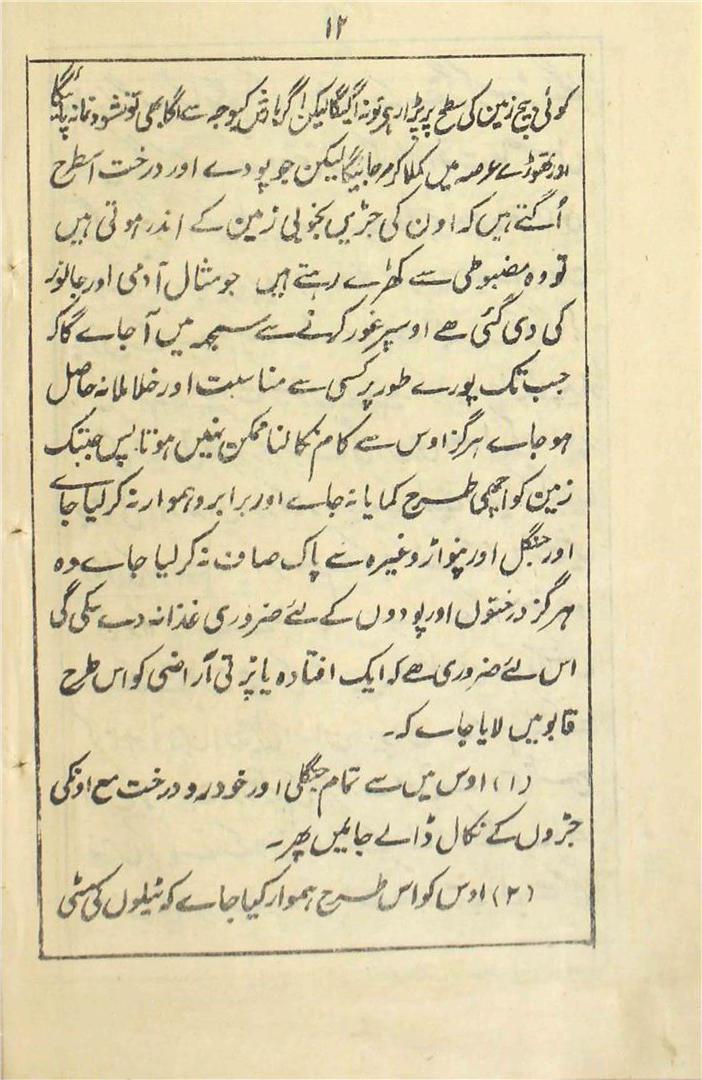 ۱۲
کوئی بیج زمین کی سطح پر پڑا رہے تو نہ اگیگا لیکن اگر بارش کیوجہ سے اگا بھی تو نشوونما نہ پائیگا
اور تھوڑے عرصہ میں کملا کر مرجائیگا لیکن جو پودے اور درخت اسطرح
اُگتے ہیں کہ اون کی جڑیں بخوبی زمین کے اندر ہوتی ہیں
تو وہ مضبوطی سے کھڑے رہتے ہیں جو مثال آدمی اور جانور
کی دی گئی ہے اوسپر غور کرنے سے سمجہہ میں آجاے گا کہ
جب تک پورے طور پر کسی سے مناسبت اور خلا ملا نہ حاصل
ہو جاے ہرگز اوس سے کام نکالنا ممکن نہیں ہوتا پس جبتک
زمین کو اچھی طرح کمایا نہ جاے اور برابر و ہموار نہ کر لیا جاے
اور جنگل اور پنواڑ وغیرہ سے پاک صاف نہ کر لیا جاے وہ
ہرگز درختوں اور پودوں کے لئے ضروری غذا نہ دے سکی گی
اس لئے ضروری ہے کہ ایک افتادہ یا پرتی آراضی کو اس طرح
قابو میں لایا جاے کہ۔
(۱) اوس میں سے تمام جنگلی اور خودرو درخت مع اونکی
جڑوں کے نکال ڈالے جائیں پھر۔
(۲) اوس کو اس طرح ہموار کیا جاے کہ ٹیلوں کی مٹی